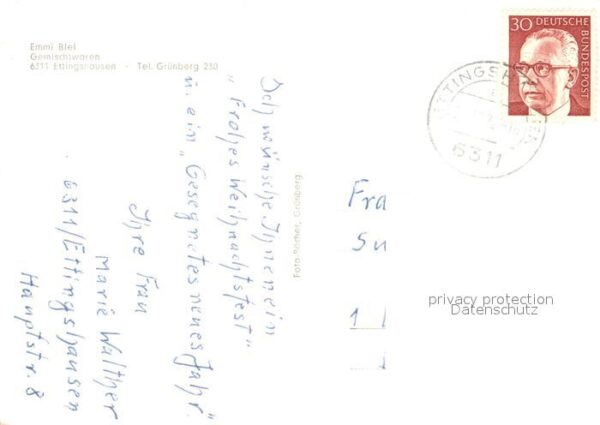 Emmi Biel
Gemischtwaren
6311 Ettingshausen · Tel. Grünberg 230
30 DEUTSCHE
BUNDESPOST
6311
Ich wünsche Ihnen ein
"Frohes Weihnachtsfest"
u. ein "Gesegnetes neues Jahr".
Ihre Frau
Marie Walther
6311/Ettingshausen
Hauptstr. 8
Grünberg
Fra
Su
1
privacy protection
Datenschutz